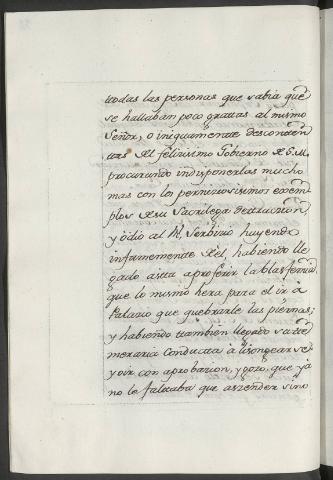 todas las personas que sabia que
se hallaban poco gratas al mismo
Señor, o iniquamente desconten
tas del felicisimo Gobierno de S. M.
procurando indisponerlas mucho
mas con los perniciosisimos exem
plos de su sacrilega detraccion,
y odio al Rl. Servicio huyendo
infamemente de el, habiendo lle
gado asta a proferir la blasfemia
que lo mismo hera para el ir à
Palacio que quebrarle las piernas;
y habiendo tambien llegado su te
meraria conducta à lisongearse,
y oir con aprobacion, y gozo, que ya
no le faltaba que ascender sino